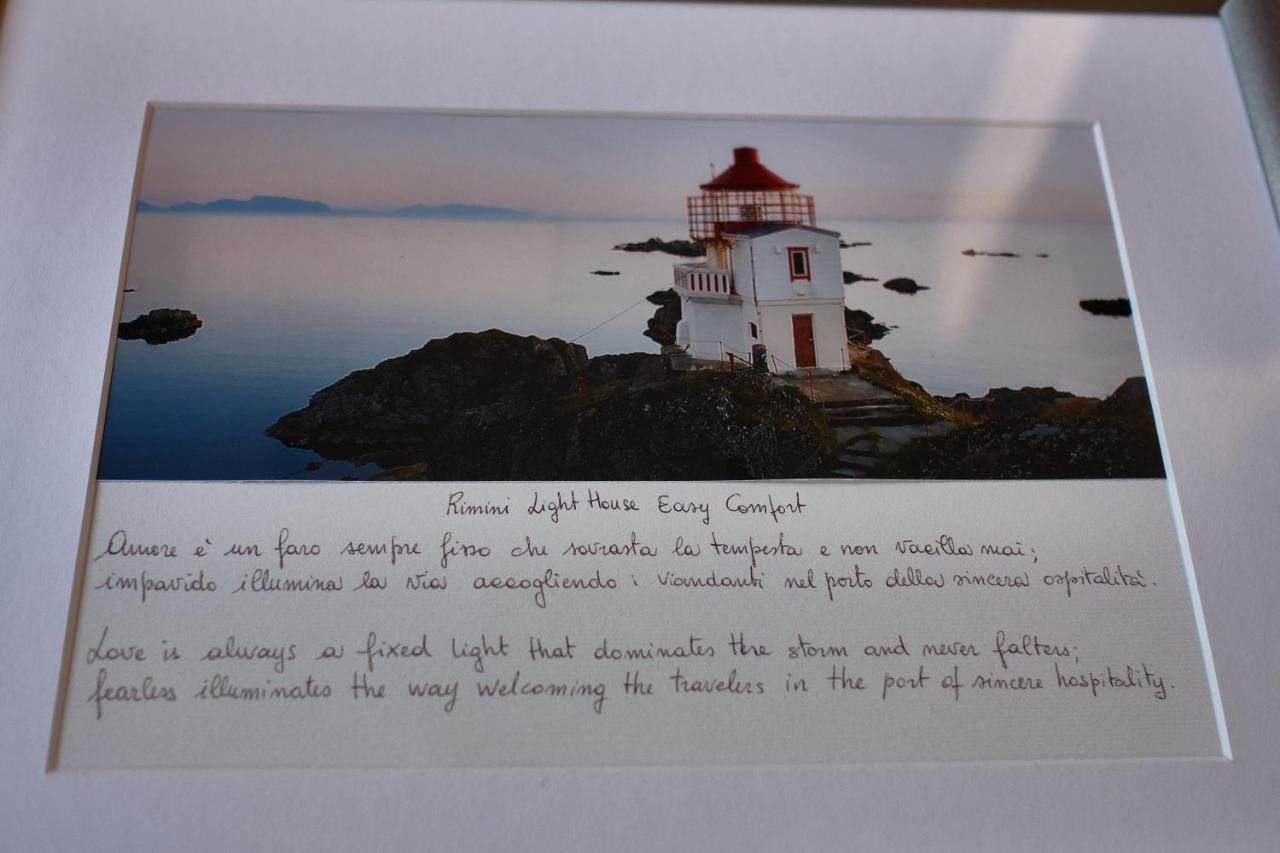 Rimini Light House Easy Comfort
Amore è un faro sempre fisso che sovrasta la tempesta e non vacilla mai;
impavido illumina la via accogliendo i viandanti nel porto della sincera ospitalità.
Love is always a fixed light that dominates the storm and never falters;
fearless illuminates the way welcoming the travelers in the port of sincere hospitality.